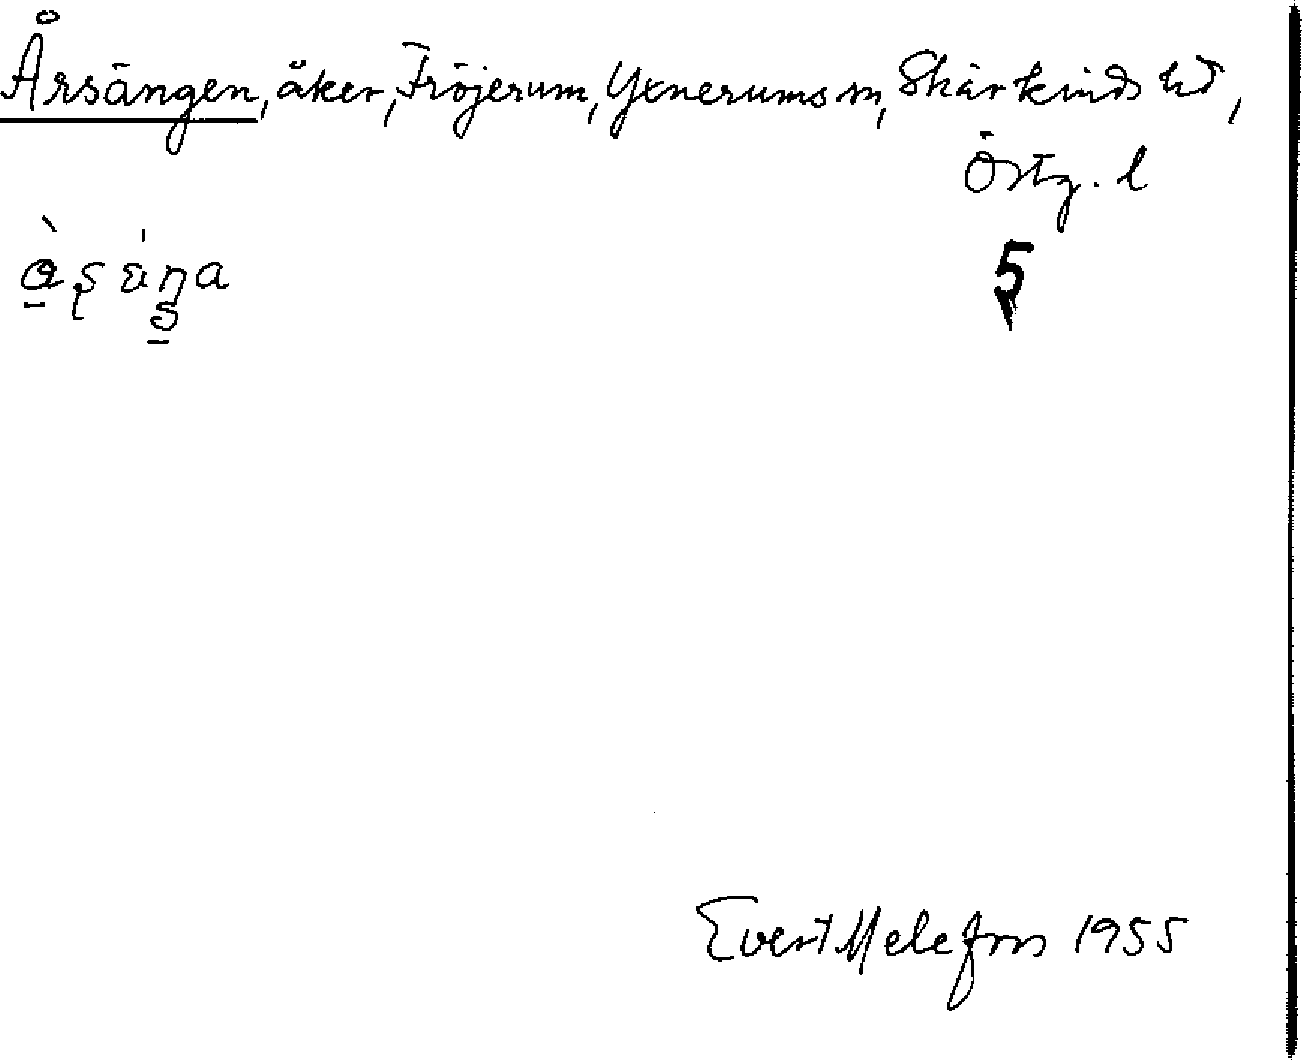 Årsängen, åker, Fröjerum, Yxnerums sn, Skärkinds hd,
Östg. l
5
Evert Melefors 1955